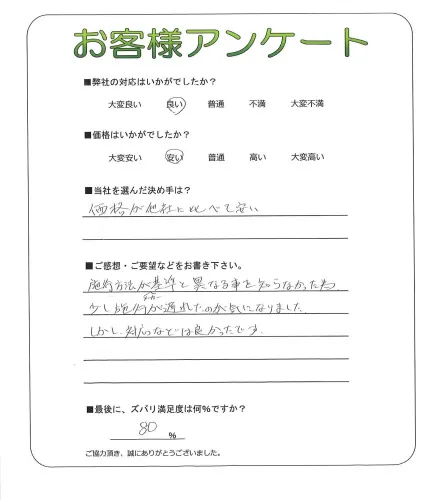 お客様アンケート
■弊社の対応はいかがでしたか?
大変良い 良い 普通 不満 大変不満
■価格はいかがでしたか?
大変安い 安い 普通 高い 大変高い
■当社を選んだ決め手は?
価格が他社に比べて安い
■ご感想・ご要望などをお書き下さい。
施行方法が基準と異なる事を知らなかった為
少し施行が遅れたのが気になりました
しかし、対応などは良かったです。
■最後に、ズバリ満足度は何%ですか?
80 %
ご協力頂き、誠にありがとうございました。